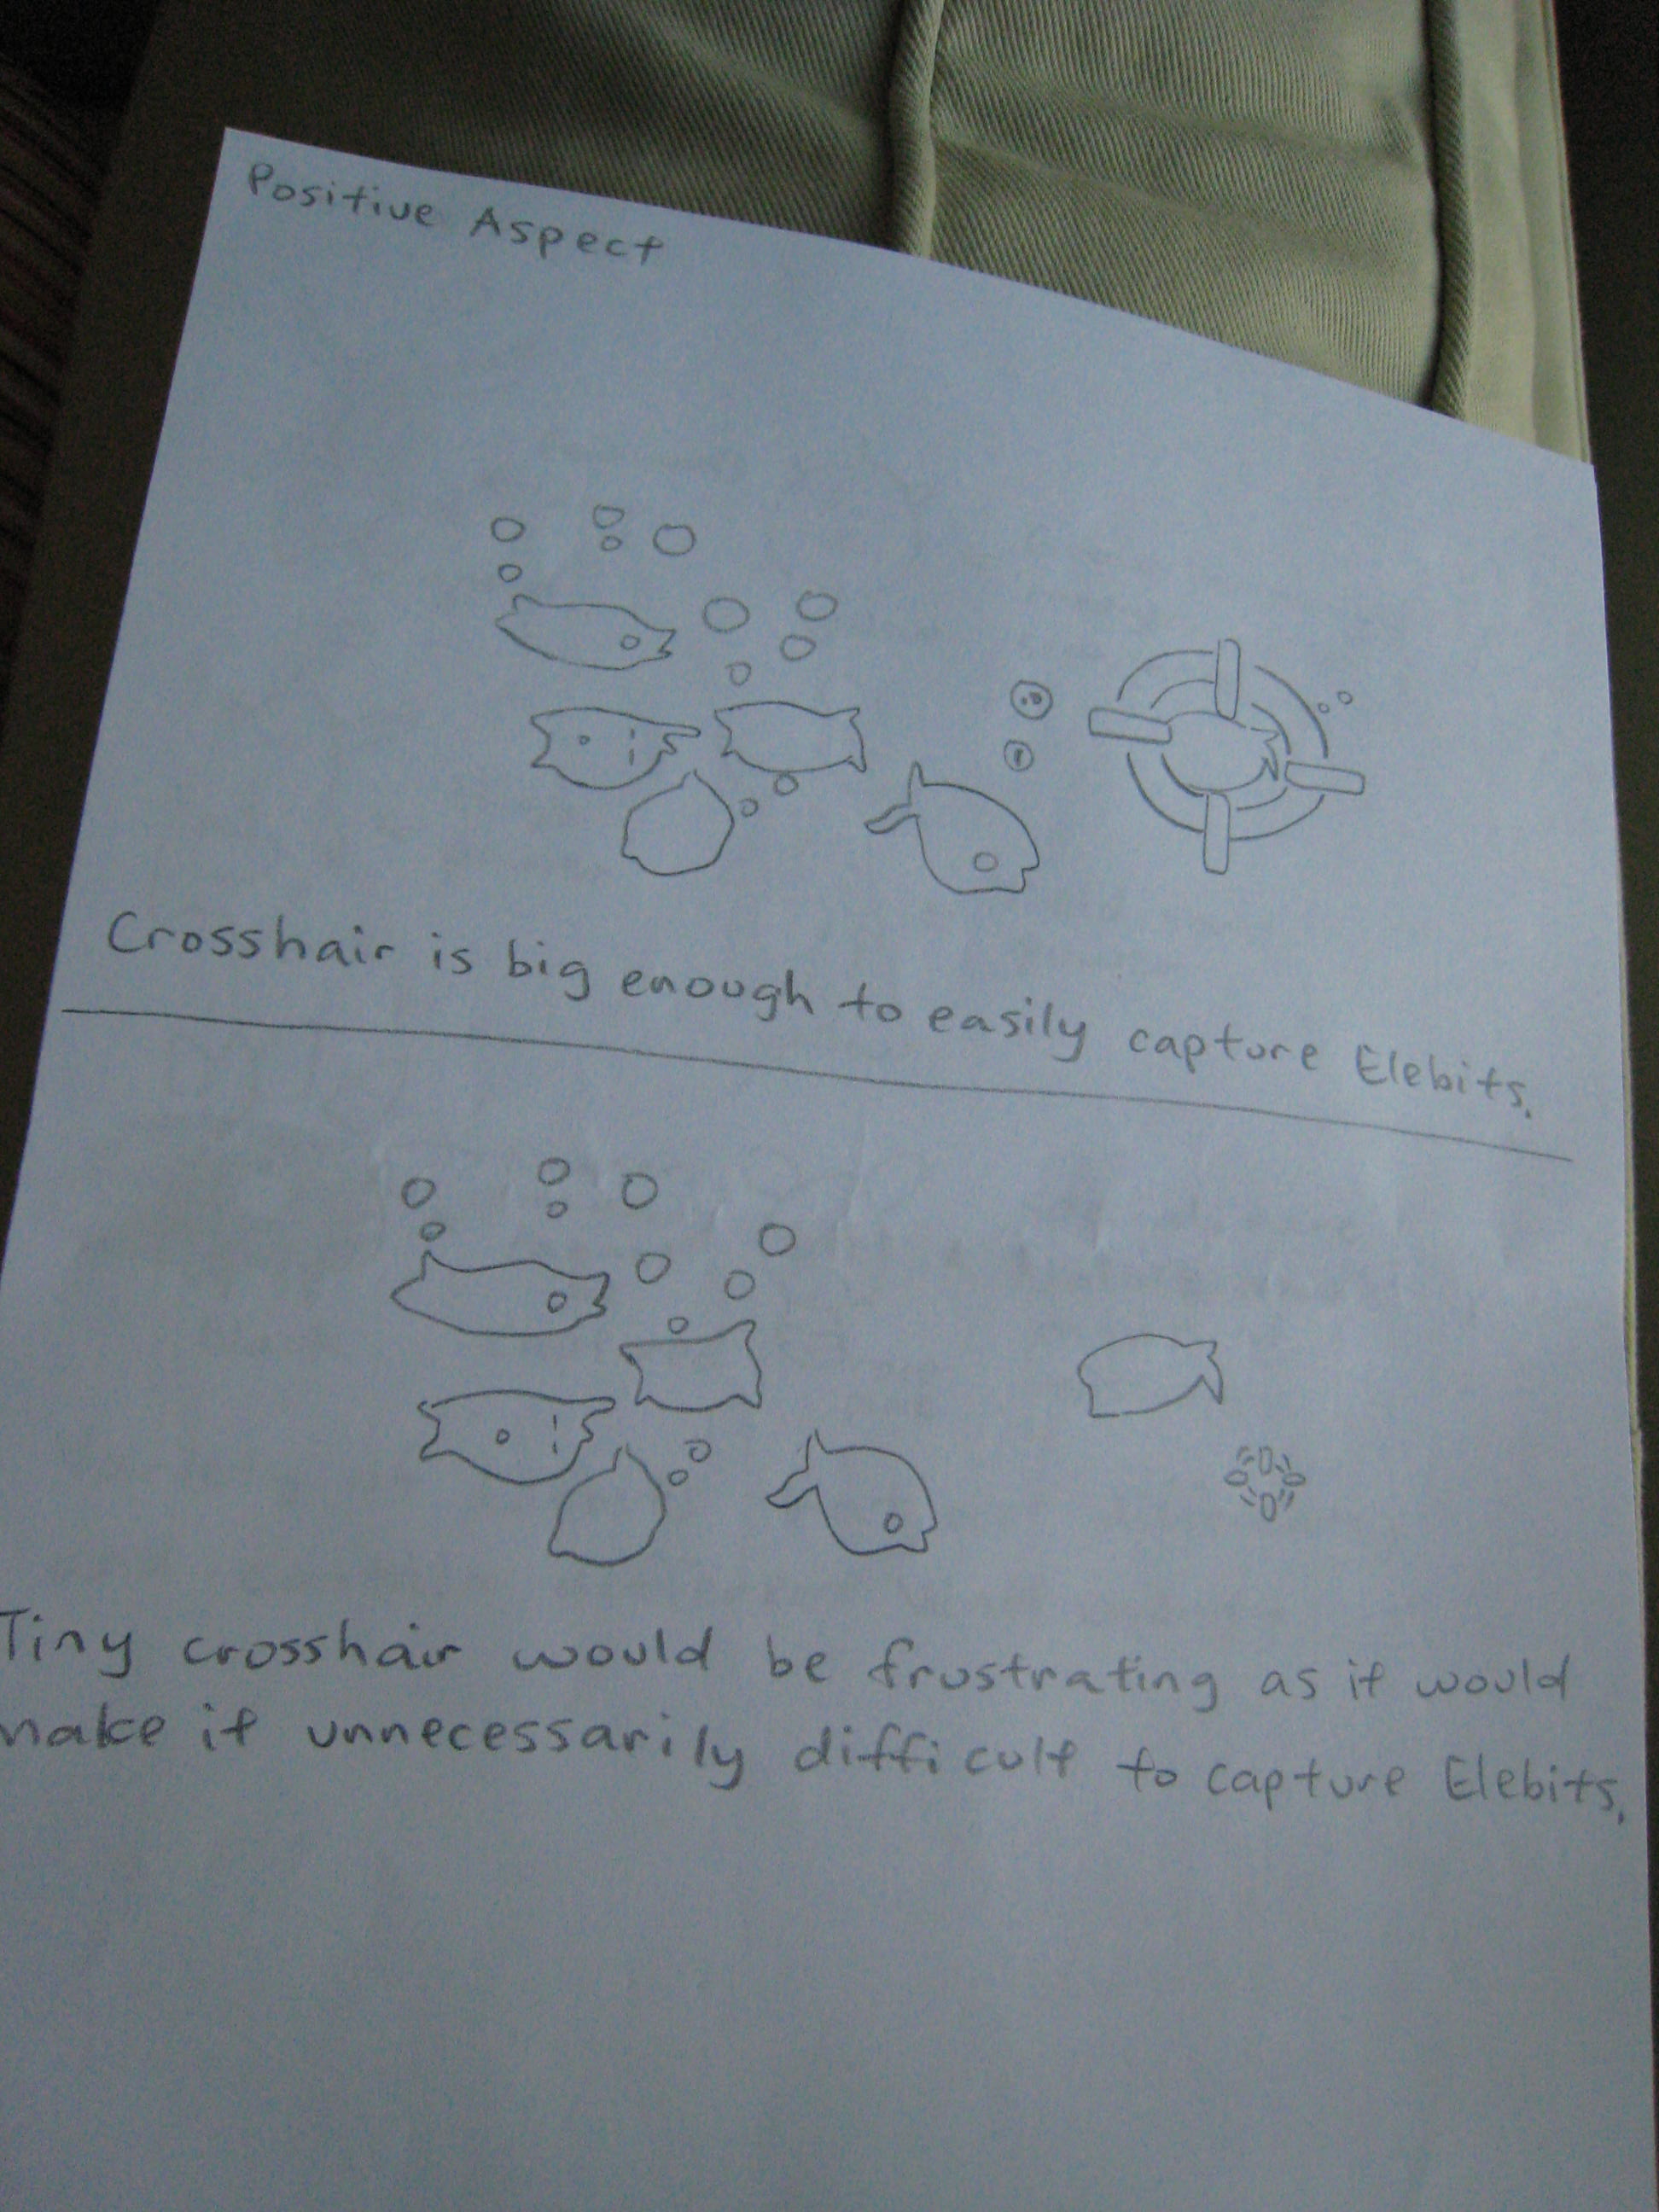 Positive Aspect
Crosshair is big enough to easily capture Elebits.
Tiny crosshair would be frustrating as it would
make it unnecessarily difficult to capture Elebits.